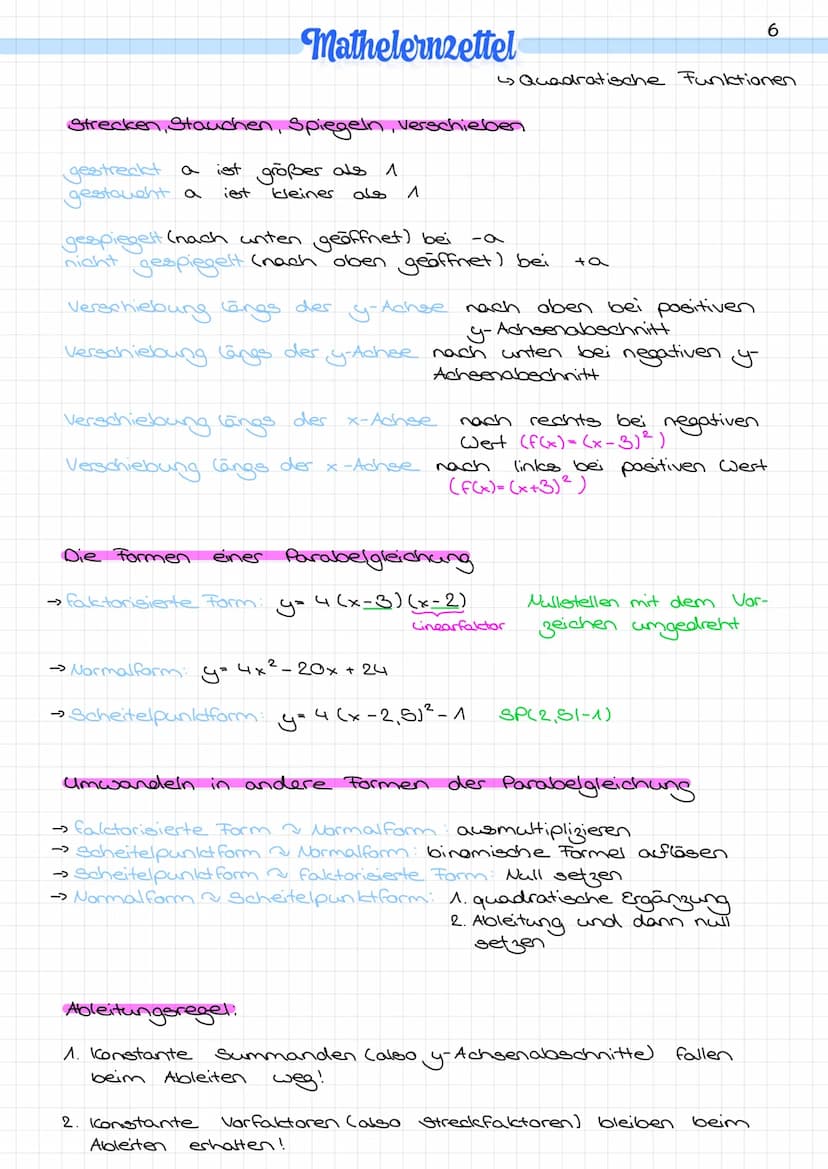 6
Mathelernzettel
↳ Quadratische Funktionen
Strecken, Stauchen, Spiegeln, Verschieben
gestreckt a ist größer als 1
gestaucht a ist kleiner als 1
gespiegelt (nach unten geöffnet) bei -a
nicht gespiegelt (nach oben geöffnet) bei +a
Verschiebung längs der y-Achse nach oben bei positiven
y-Achsenabschnitt
Verschiebung längs der y-Achse nach unten bei negativen y-
Achsenabschnitt
Verschiebung längs der x-Achse nach rechts bei negativen
Wert (f(x)=(x-3)²)
Verschiebung längs der x-Achse nach links bei positiven Wert
(f(x)=(x+3)²)
Die Formen einer Parabelgleichung
→ faktorisierte Form: y= 4(x-3)(x-2) Nullstellen mit dem Vor-
Linearfaktor zeichen umgedreht
→ Normalform: y= 4x²-20x+24
→ Scheitelpunktform: y= 4(x-2,5)²-1 SP(2,5|-1)
Umwandeln in andere Formen der Parabelgleichung
→ faktorisierte Form ~ Normalform: ausmultiplizieren
→ Scheitelpunktform ~ Normalform: binomische Formel auflösen
→ Scheitelpunktform ~ faktorisierte Form: Null setzen
→ Normalform ~ Scheitelpunktform: 1. quadratische Ergänzung
2. Ableitung und dann null
setzen
Ableitungsregel:
1. Konstante Summanden (also y-Achsenabschnitte) fallen
beim Ableiten weg!
2. Konstante Vorfaktoren (also Streckfaktoren) bleiben beim
Ableiten erhalten!